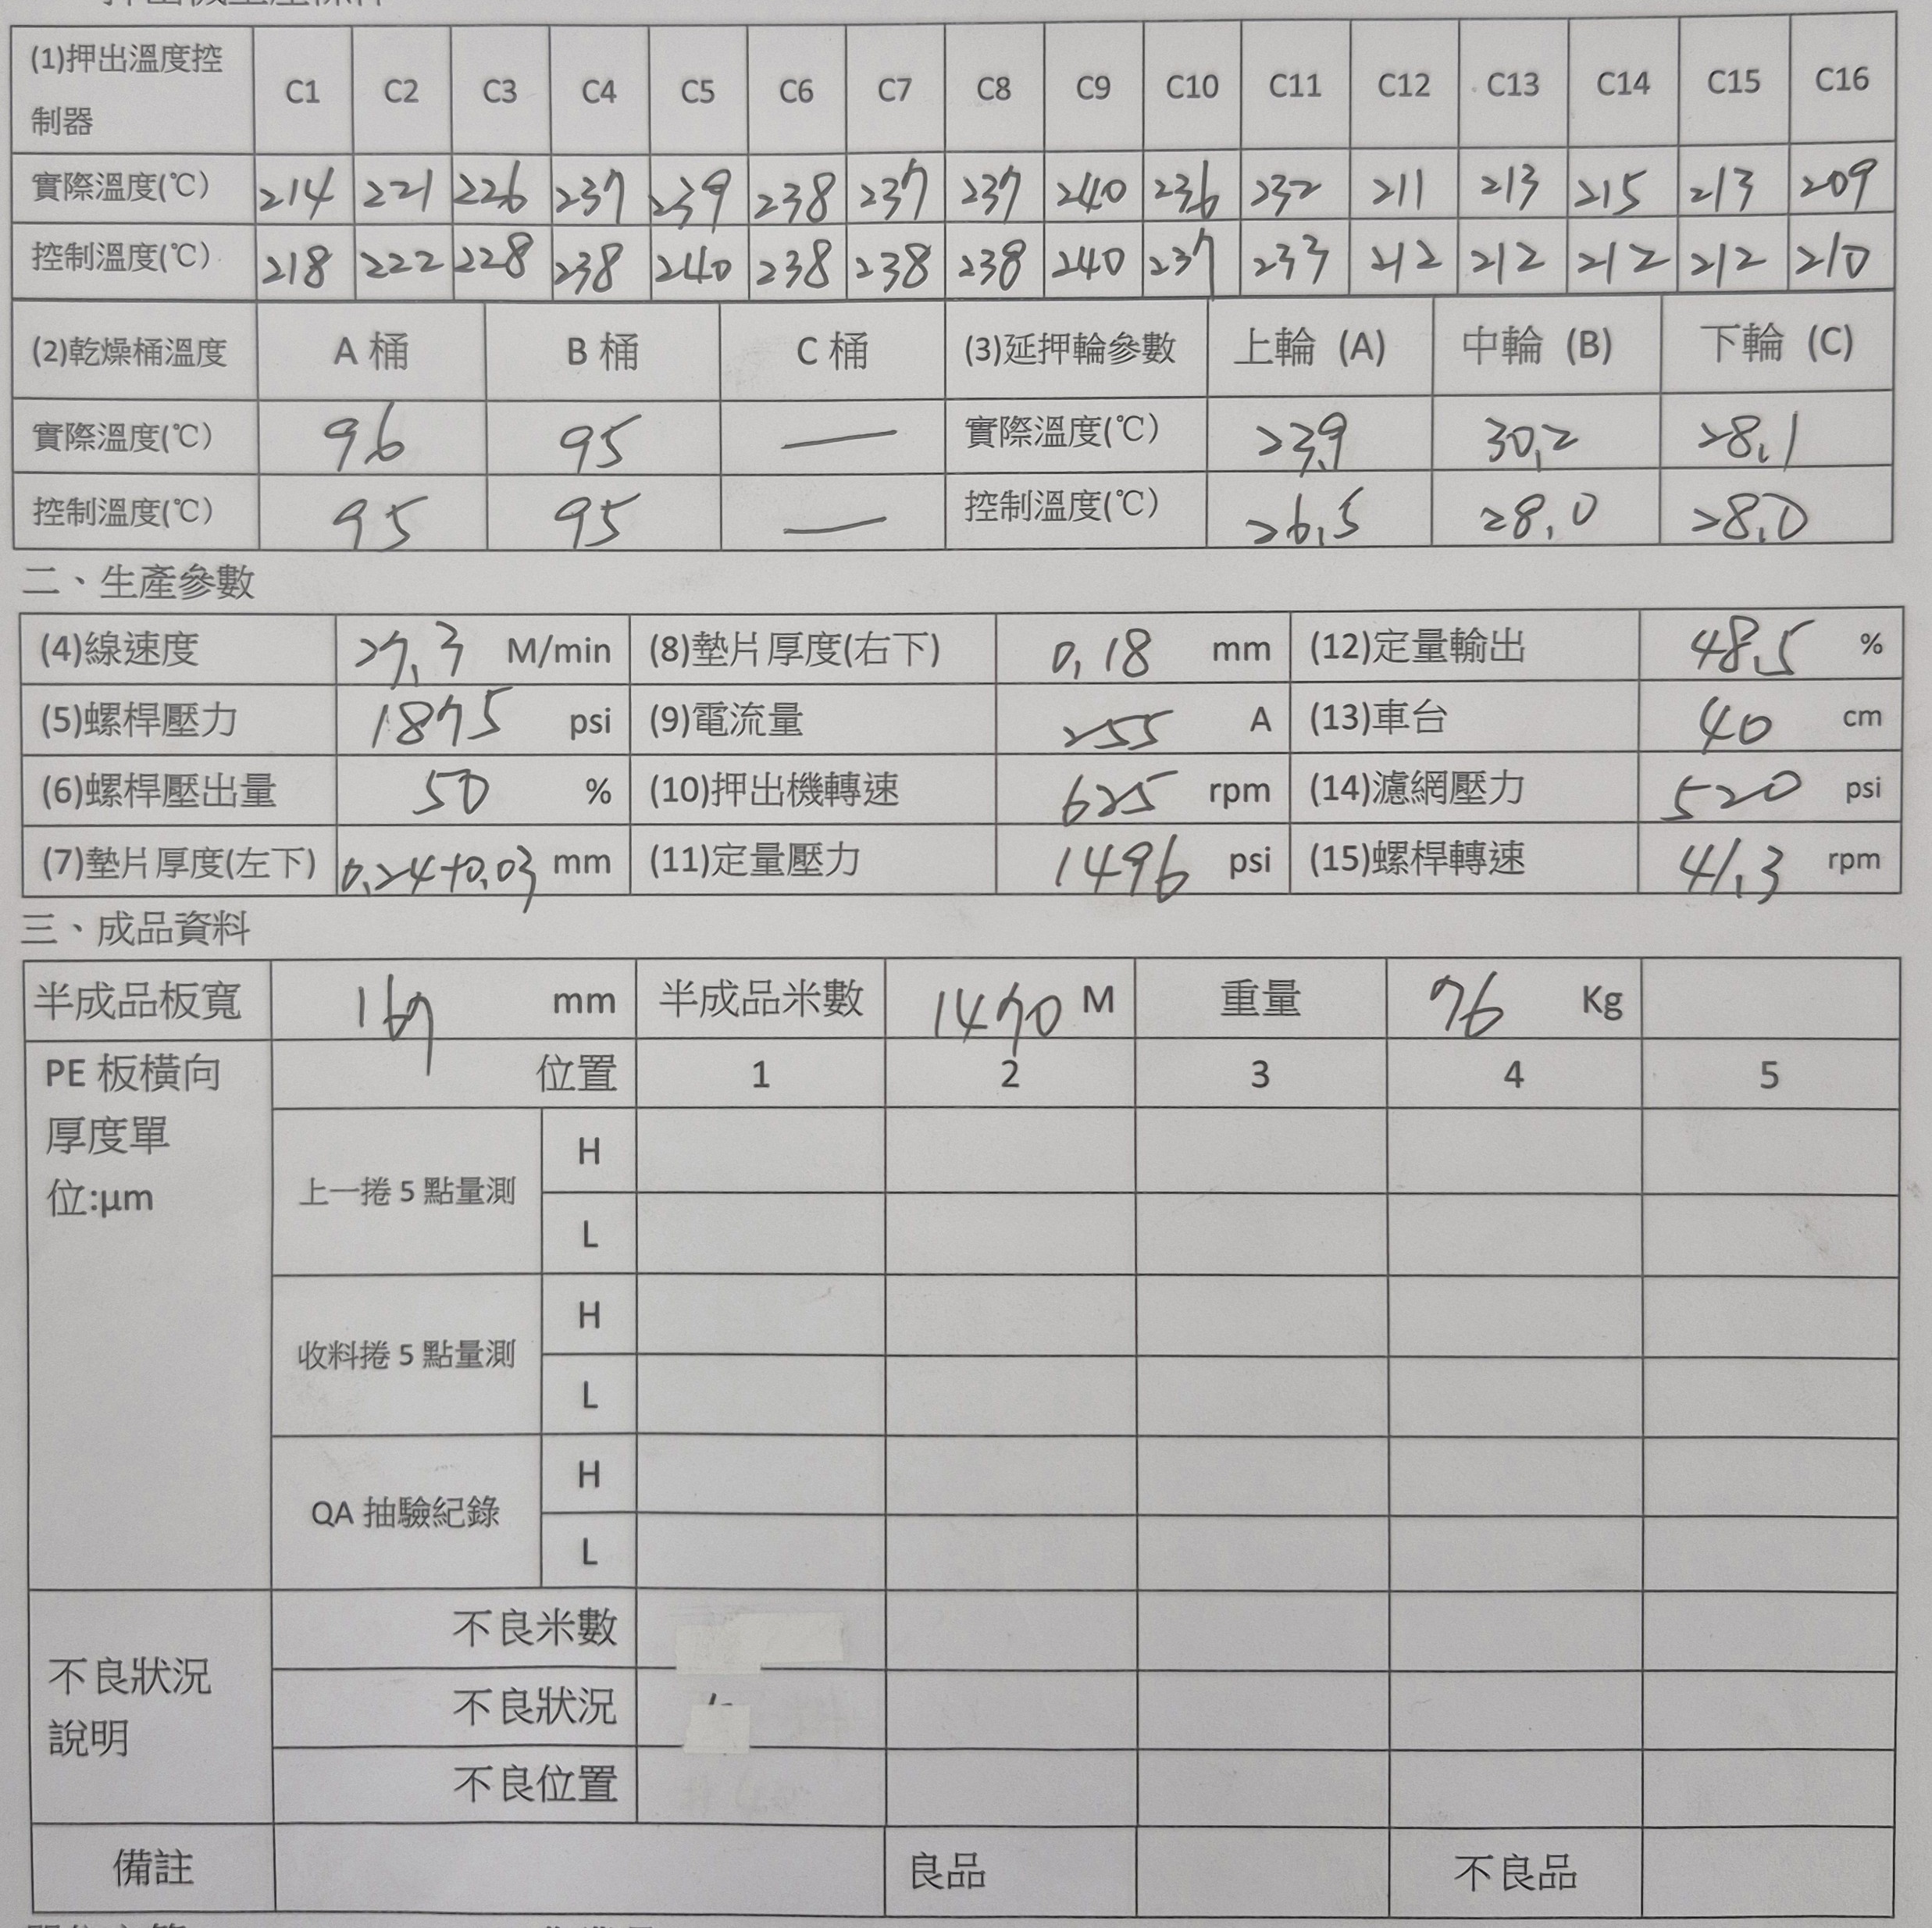 (1)押出溫度控制器 C1 C2 C3 C4 C5 C6 C7 C8 C9 C10 C11 C12 C13 C14 C15 C16
實際溫度(℃) 214 221 226 237 239 238 237 237 240 236 232 211 213 215 213 209
控制溫度(℃) 218 222 228 238 240 238 238 238 240 237 233 212 212 212 212 210
(2)乾燥桶溫度 A 桶 B 桶 C 桶 (3)延押輪參數 上輪 (A) 中輪 (B) 下輪 (C)
實際溫度(℃) 96 95 — 實際溫度(℃) 23.9 30.2 28.1
控制溫度(℃) 95 95 — 控制溫度(℃) 26.5 28.0 28.0
二、生產參數
(4)線速度 27.3 M/min (8)墊片厚度(右下) 0.18 mm (12)定量輸出 48.5 %
(5)螺桿壓力 1875 psi (9)電流量 255 A (13)車台 40 cm
(6)螺桿壓出量 50 % (10)押出機轉速 625 rpm (14)濾網壓力 520 psi
(7)墊片厚度(左下) 0.24+0.03 mm (11)定量壓力 1496 psi (15)螺桿轉速 41.3 rpm
三、成品資料
半成品板寬 167 mm 半成品米數 1470 M 重量 76 Kg
PE 板橫向厚度單位:μm 位置 1 2 3 4 5
上一捲 5 點量測 H
L
收料捲 5 點量測 H
L
QA 抽驗紀錄 H
L
不良狀況說明 不良米數
不良狀況
不良位置
備註 良品 不良品